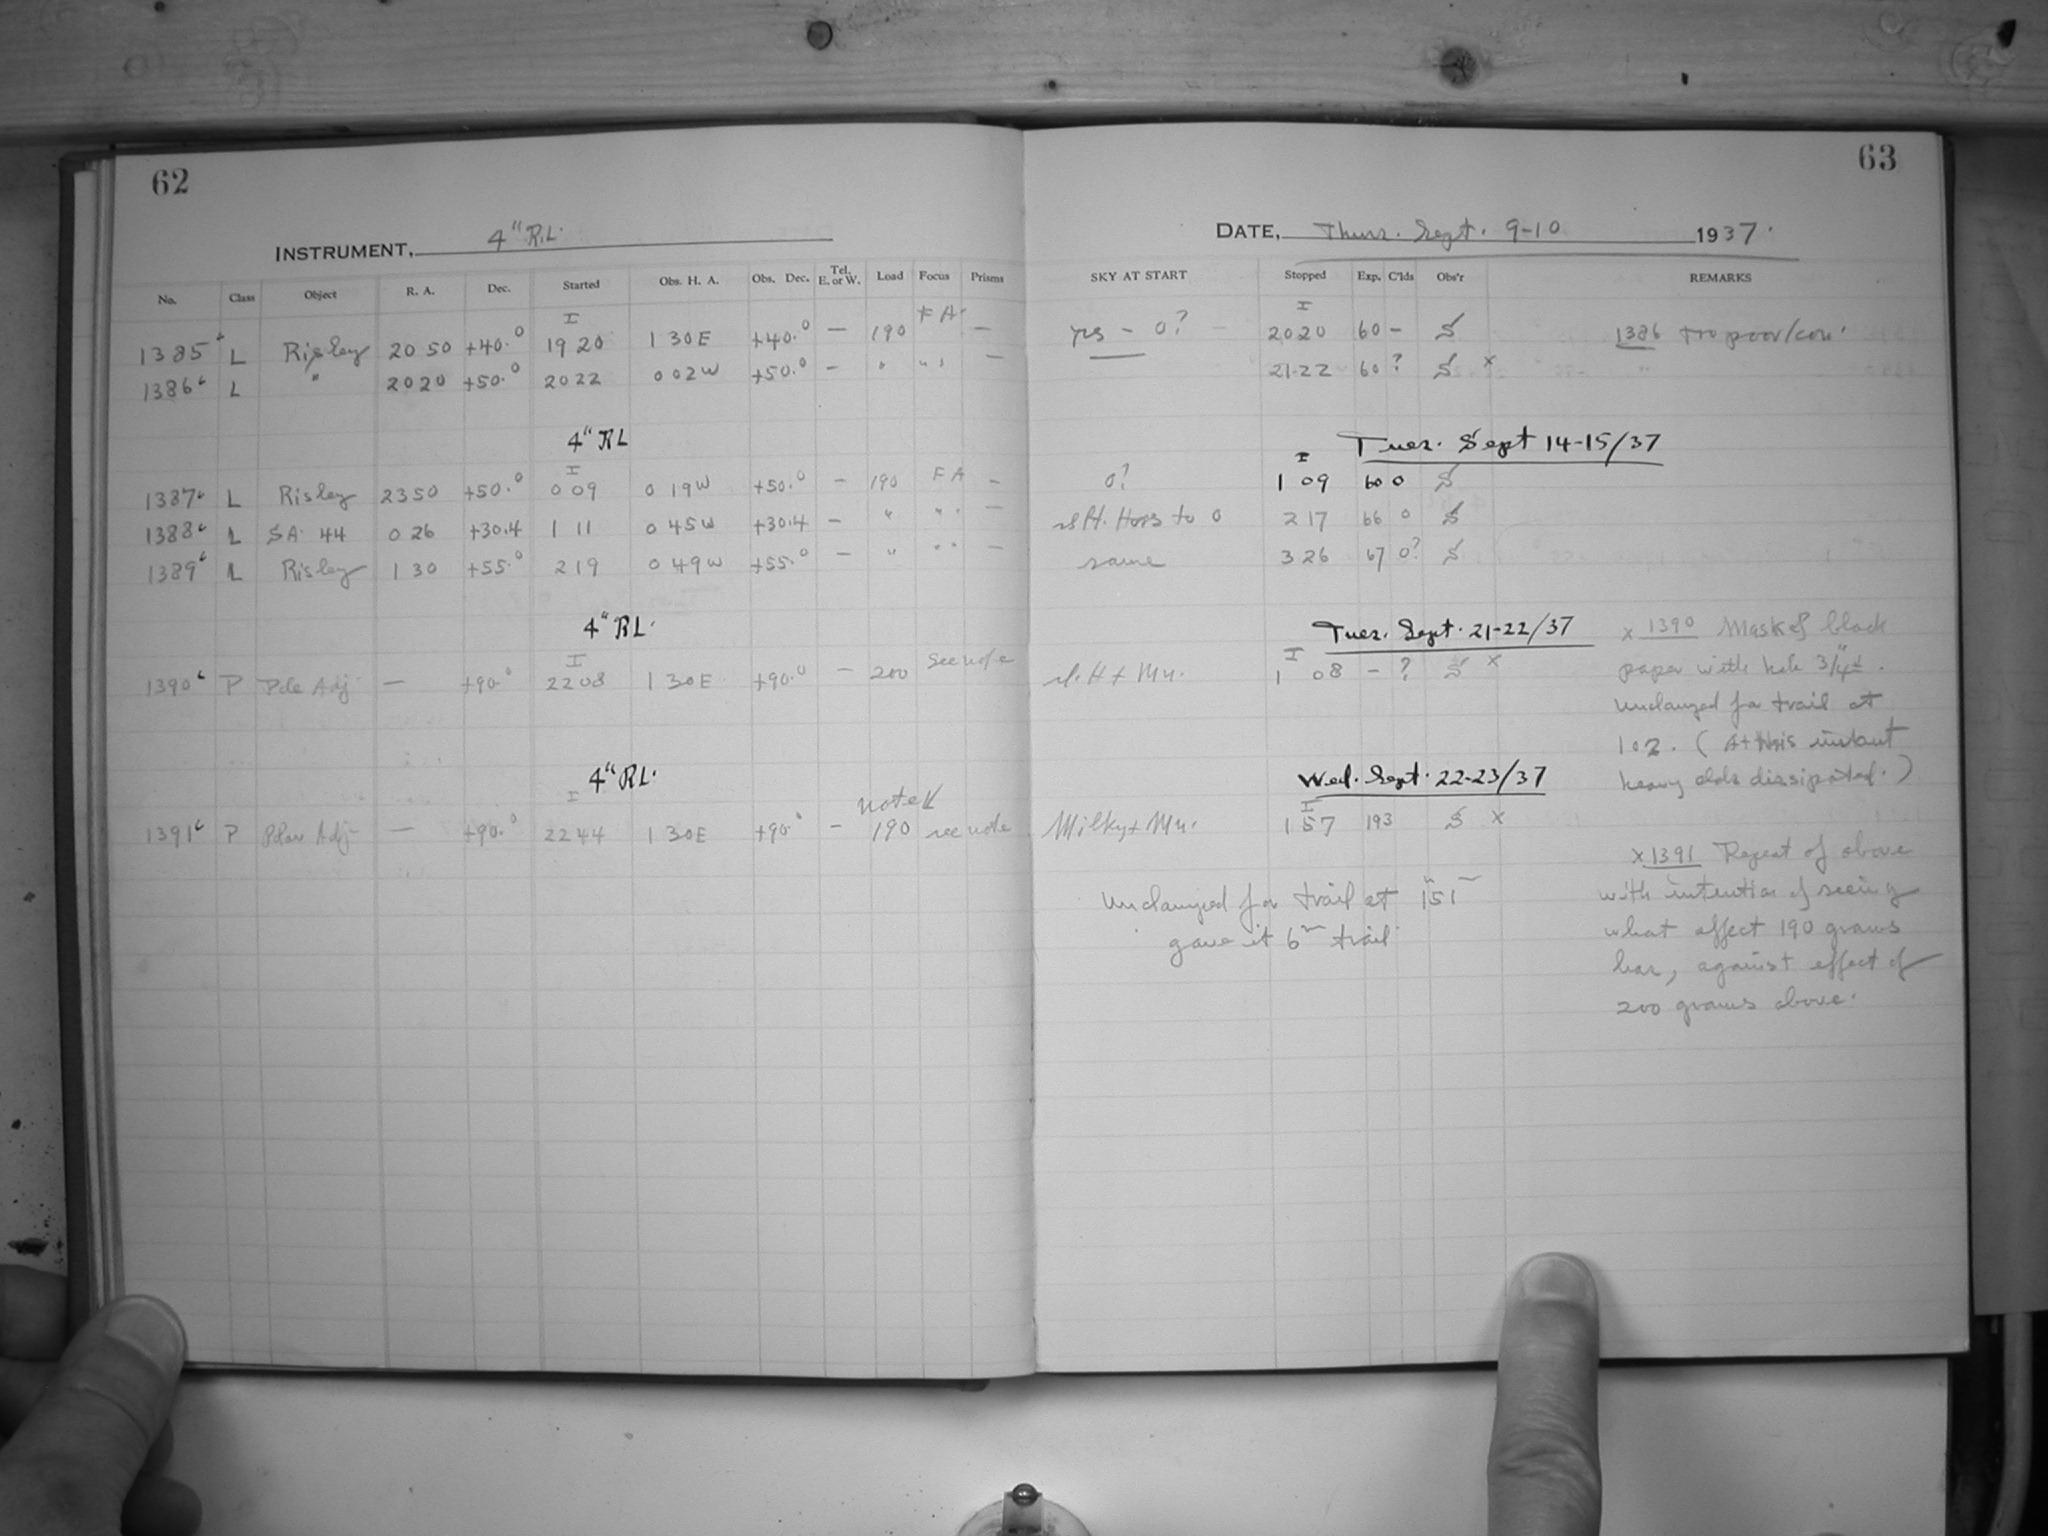 62
INSTRUMENT, 4" R.L.
No. Class Object R. A. Dec. Started Obs. H. A. Obs. Dec. Tel. E. or W. Load Focus Prisms
I
1385 L Risley 20 50 +40.0 19 20 1 30E +40.0 — 190 FA. —
1386 L " 20 20 +50.0 20 22 0 02W +50.0 — " " " —
4" RL
I
1387 L Risley 23 50 +50.0 0 09 0 19W +50.0 — 190 FA —
1388 L S.A. 44 0 26 +30.4 1 11 0 45W +30.4 — " " " —
1389 L Risley 1 30 +55.0 2 19 0 49W +55.0 — " " " —
4" RL.
I
1390 P Pole Adj — +90.0 22 08 1 30E +90.0 — 200 see note
4" RL.
I
note
1391 P Polar Adj — +90.0 22 44 1 30E +90.0 — 190 see note
63
DATE, Thurs. Sept. 9-10 1937.
SKY AT START Stopped Exp. C'lds Obs'r REMARKS
I
yes — 0? 20 20 60 — S 1386 too poor/con'
21 22 60 ? S x
Tues. Sept 14-15/37
I
0? 1 09 60 0 S
to 0 2 17 66 0 S
same 3 26 67 0? S
Tues. Sept. 21-22/37
I
1 08 — ? S x
x 1390 Mask of black
paper with hole 3/4"
Unclamped for trail at
102. (At this instant
heavy clds dissipated.)
Wed. Sept. 22-23/37
I
Milky + Mn. 1 57 193 S x
Unclamped for trail at 151
gave it 6m trail
x 1391 Repeat of above
with intention of seeing
what affect 190 grams
has, against effect of
200 grams above.